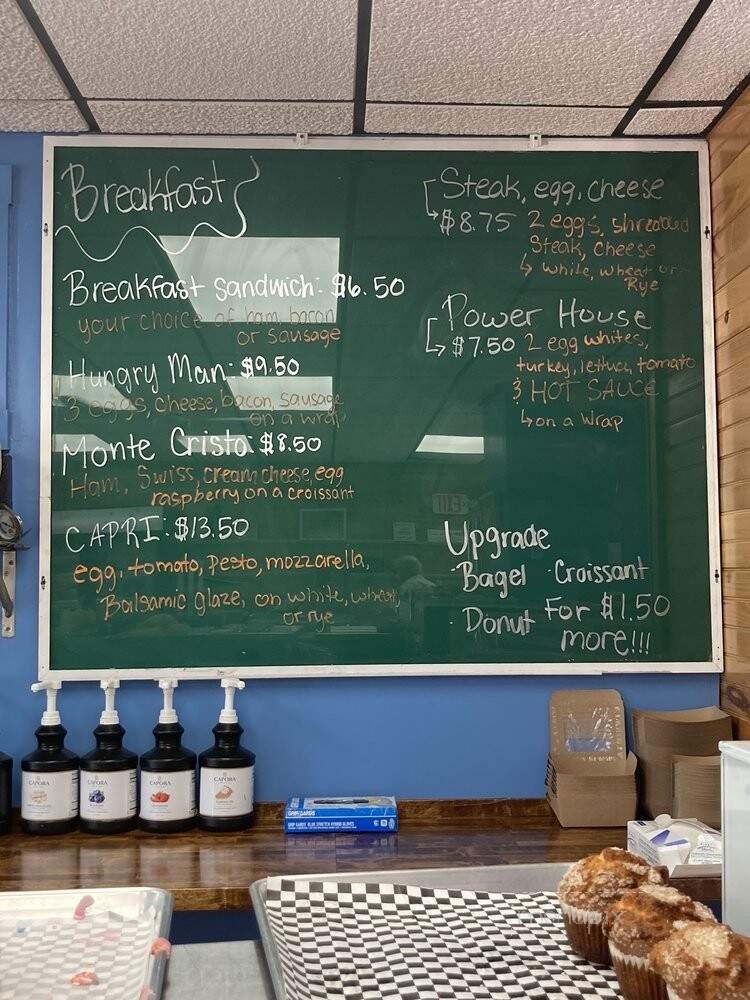 Breakfast
Breakfast sandwich: $6.50
your choice of ham, bacon
or sausage
Hungry Man: $9.50
3 eggs, cheese, bacon, sausage
on a wrap
Monte Cristo: $8.50
Ham, Swiss, cream cheese, egg
raspberry on a croissant
CAPRI: $13.50
egg, tomato, pesto, mozzarella,
Balsamic glaze, on white, wheat,
or rye
Steak, egg, cheese
$8.75 2 eggs, shredded
Steak, cheese
white, wheat or
Rye
Power House
$7.50 2 egg whites,
turkey, lettuce, tomato
& HOT SAUCE
on a wrap
Upgrade
· Bagel · Croissant
· Donut For $1.50
more!!!
CAPORA
CAPORA
CAPORA
CAPORA